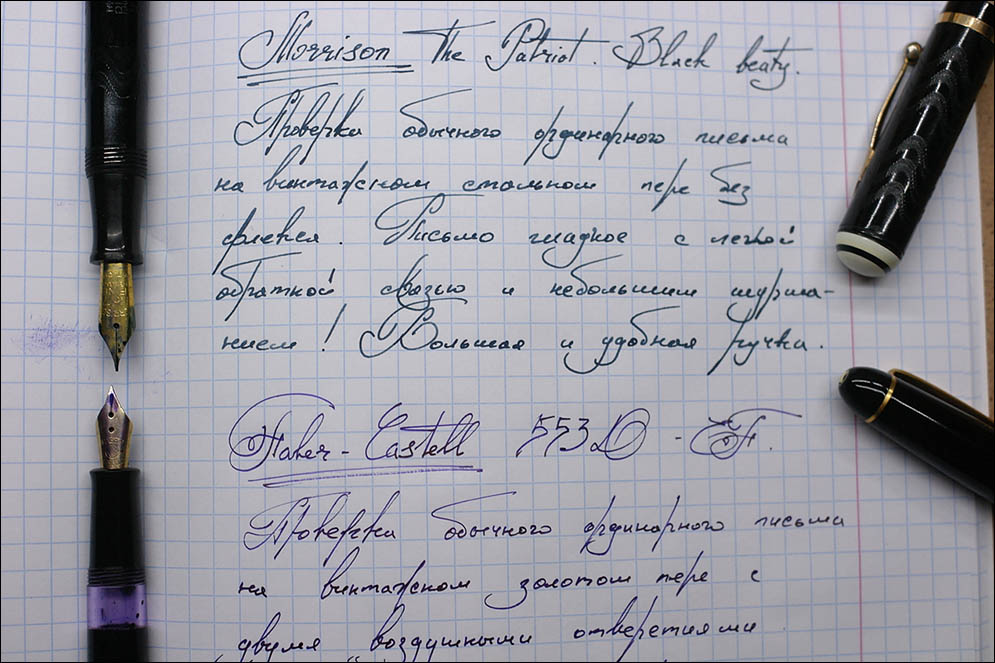 Morrison The Patriot. Black beaty.
Проверка обычного ординарного письма
на винтажном стальном пере без
флекса. Письмо гладкое с легкой
обратной связью и небольшим шурша-
нием! Большая и удобная ручка.
Faber-Castell 553D - EF.
Проверка обычного ординарного письма
на винтажном золотом пере с
двумя воздушными отверстиями